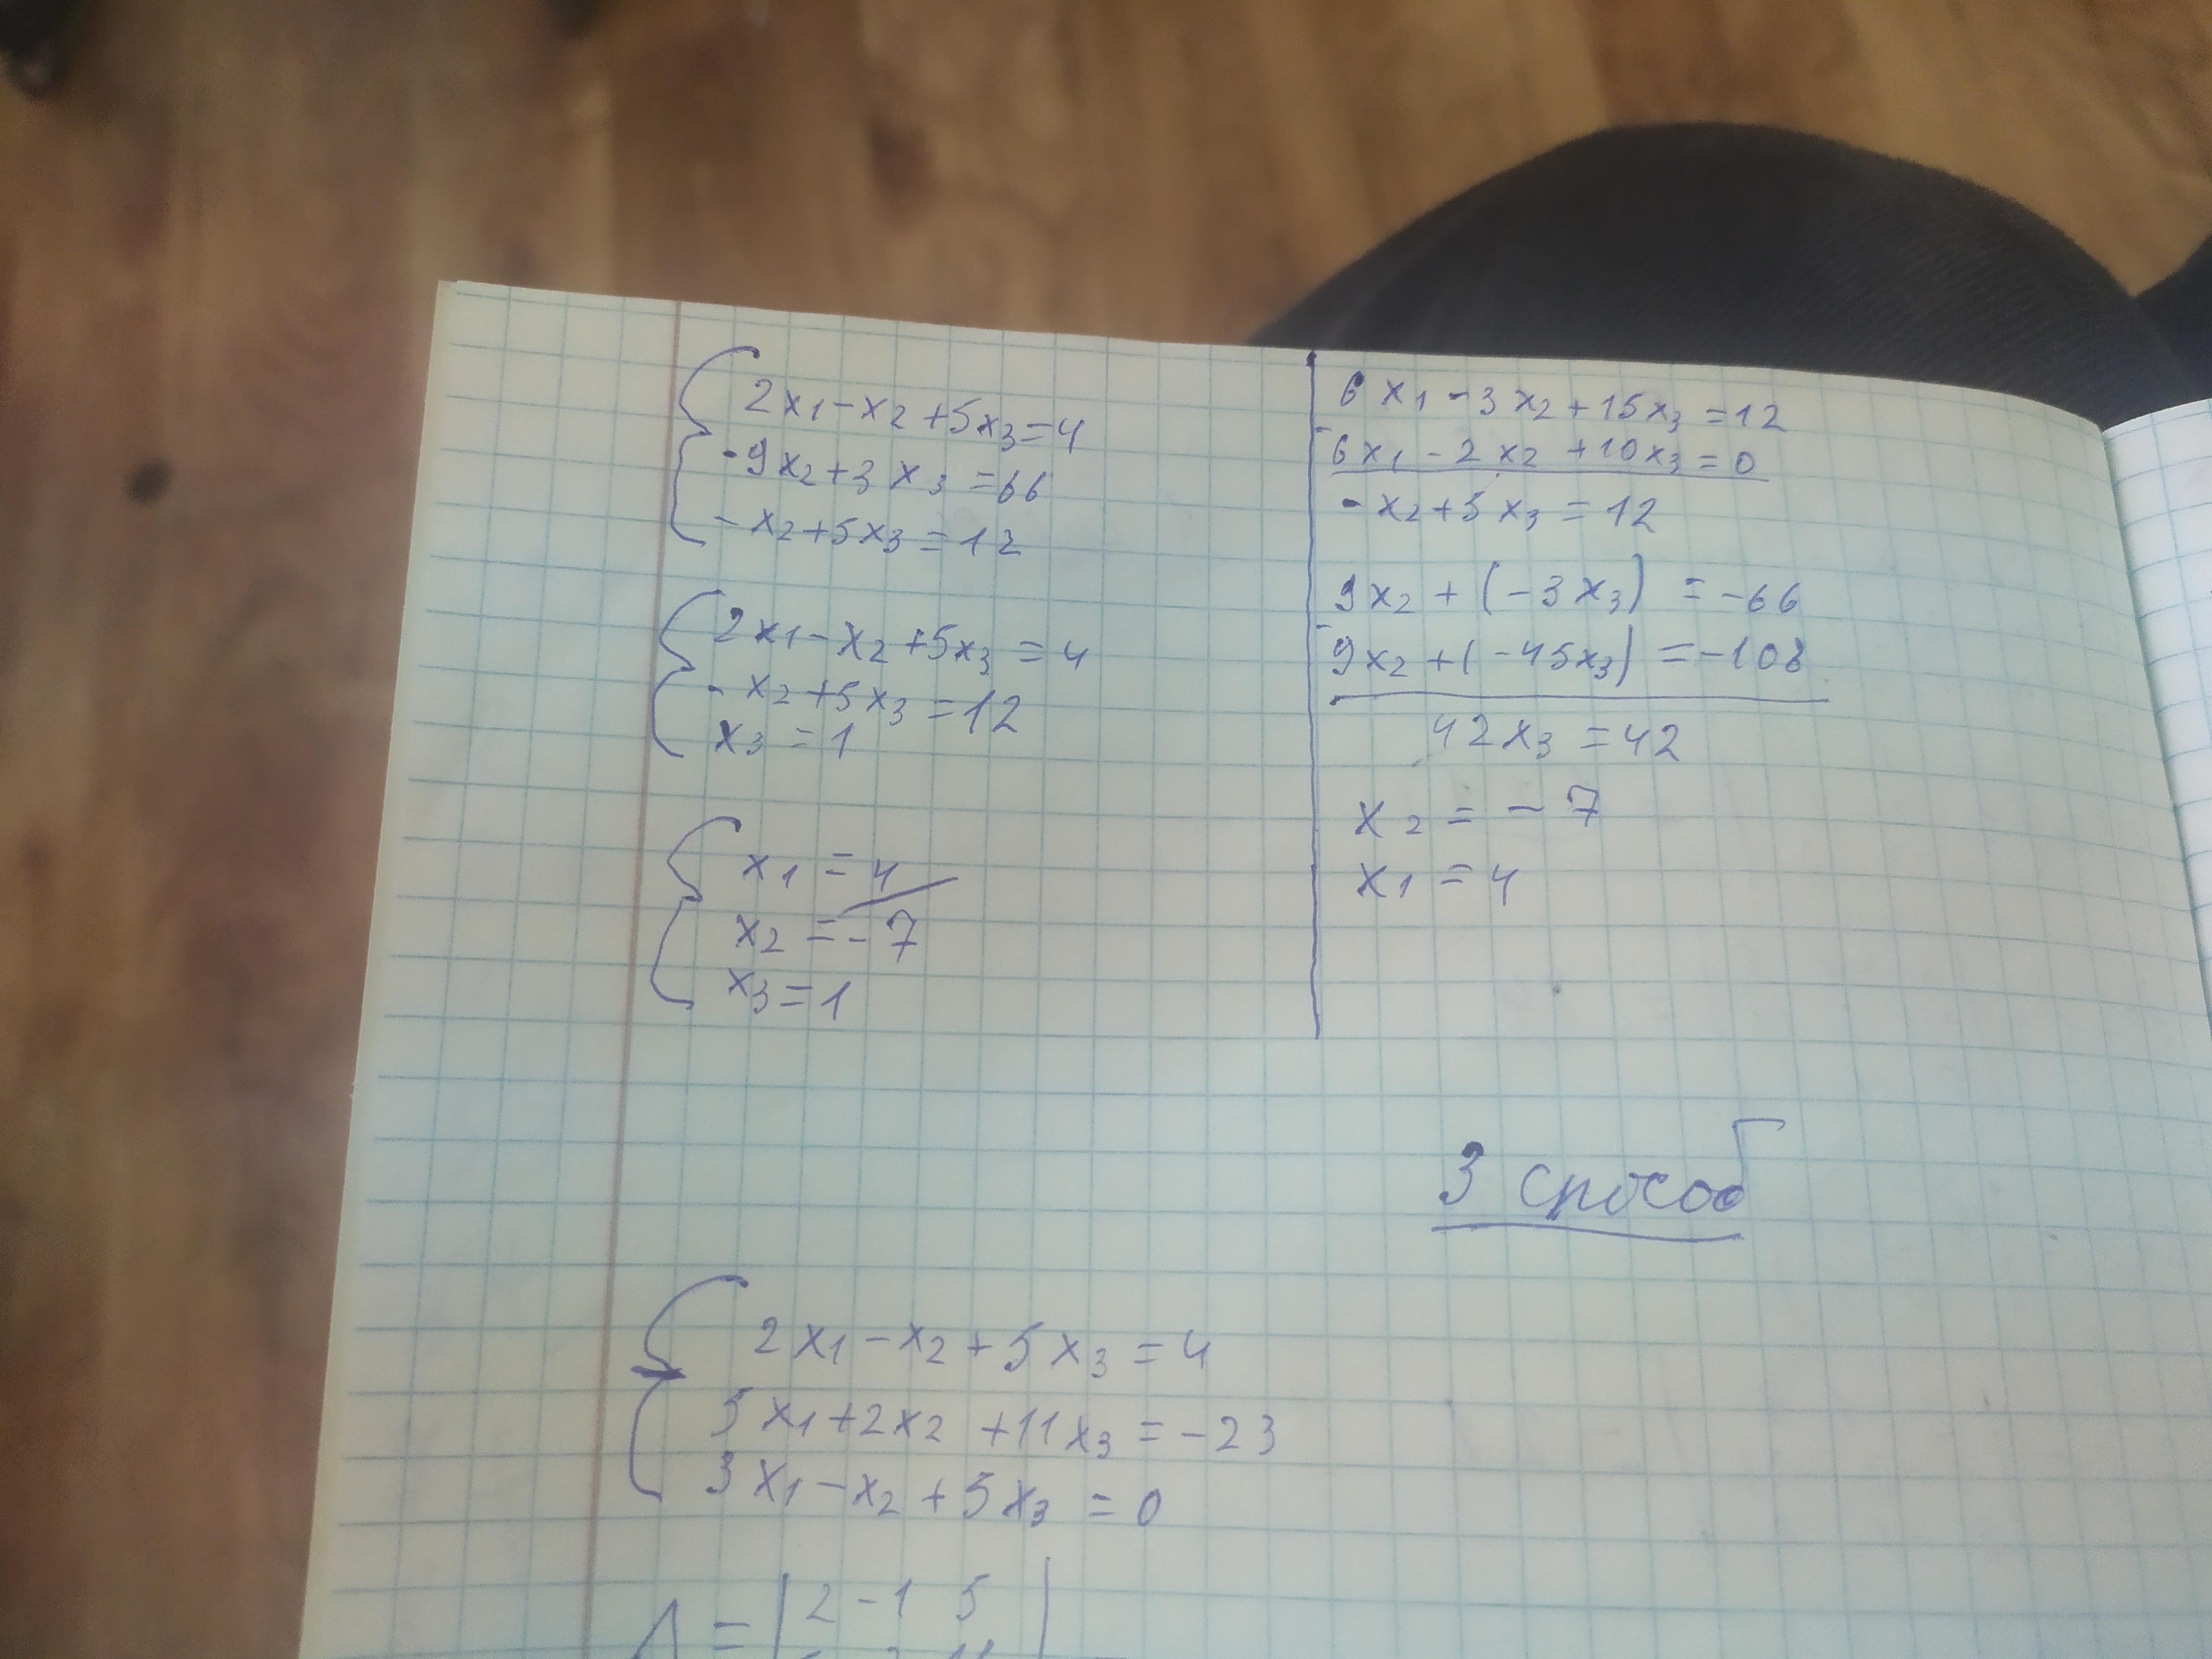 2x1-x2+5x3=4
-9x2+3x3=66
-x2+5x3=12
2x1-x2+5x3=4
-x2+5x3=12
x3=1
x1=4
x2=-7
x3=1
6x1-3x2+15x3=12
-
6x1-2x2+10x3=0
-x2+5x3=12
9x2+(-3x3)=-66
-
9x2+(-45x3)=-108
42x3=42
x2=-7
x1=4
3 способ
2x1-x2+5x3=4
5x1+2x2+11x3=-23
3x1-x2+5x3=0
Δ=|2 -1 5|